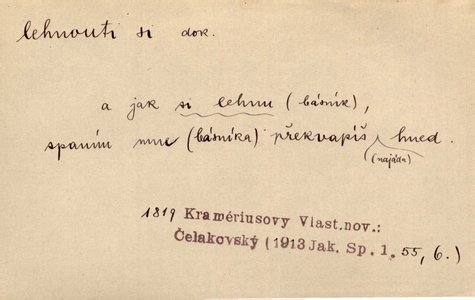 lehnouti si dok.
a jak si lehnu (básník),
spaním mne (básníka) překvapíš hned.
(najáda)
1819 Kramériusovy Vlast.nov.:
Čelakovský (1913 Jak. Sp. 1, 55, 6.)